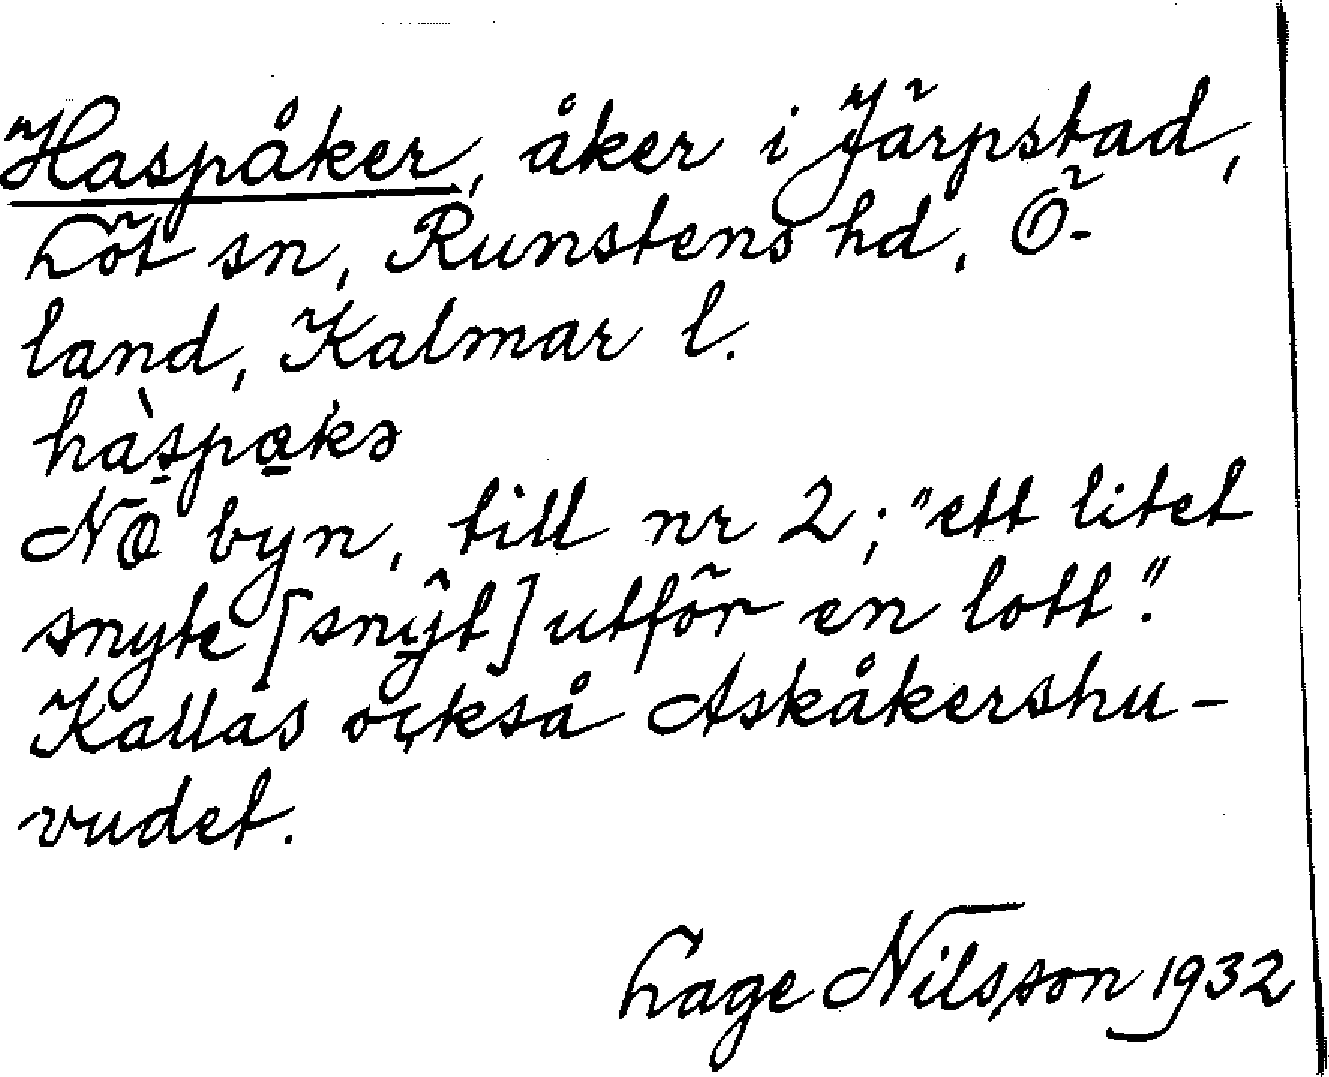 Haspåker, åker i Järpstad,
Löt sn, Runstens hd, Ö-
land, Kalmar l.
hàspa̲kə
NÖ byn, till nr 2; "ett litet
snyte [snŷt] utför en lott".
Kallas också Askåkershu-
vudet.
Lage Nilsson 1932